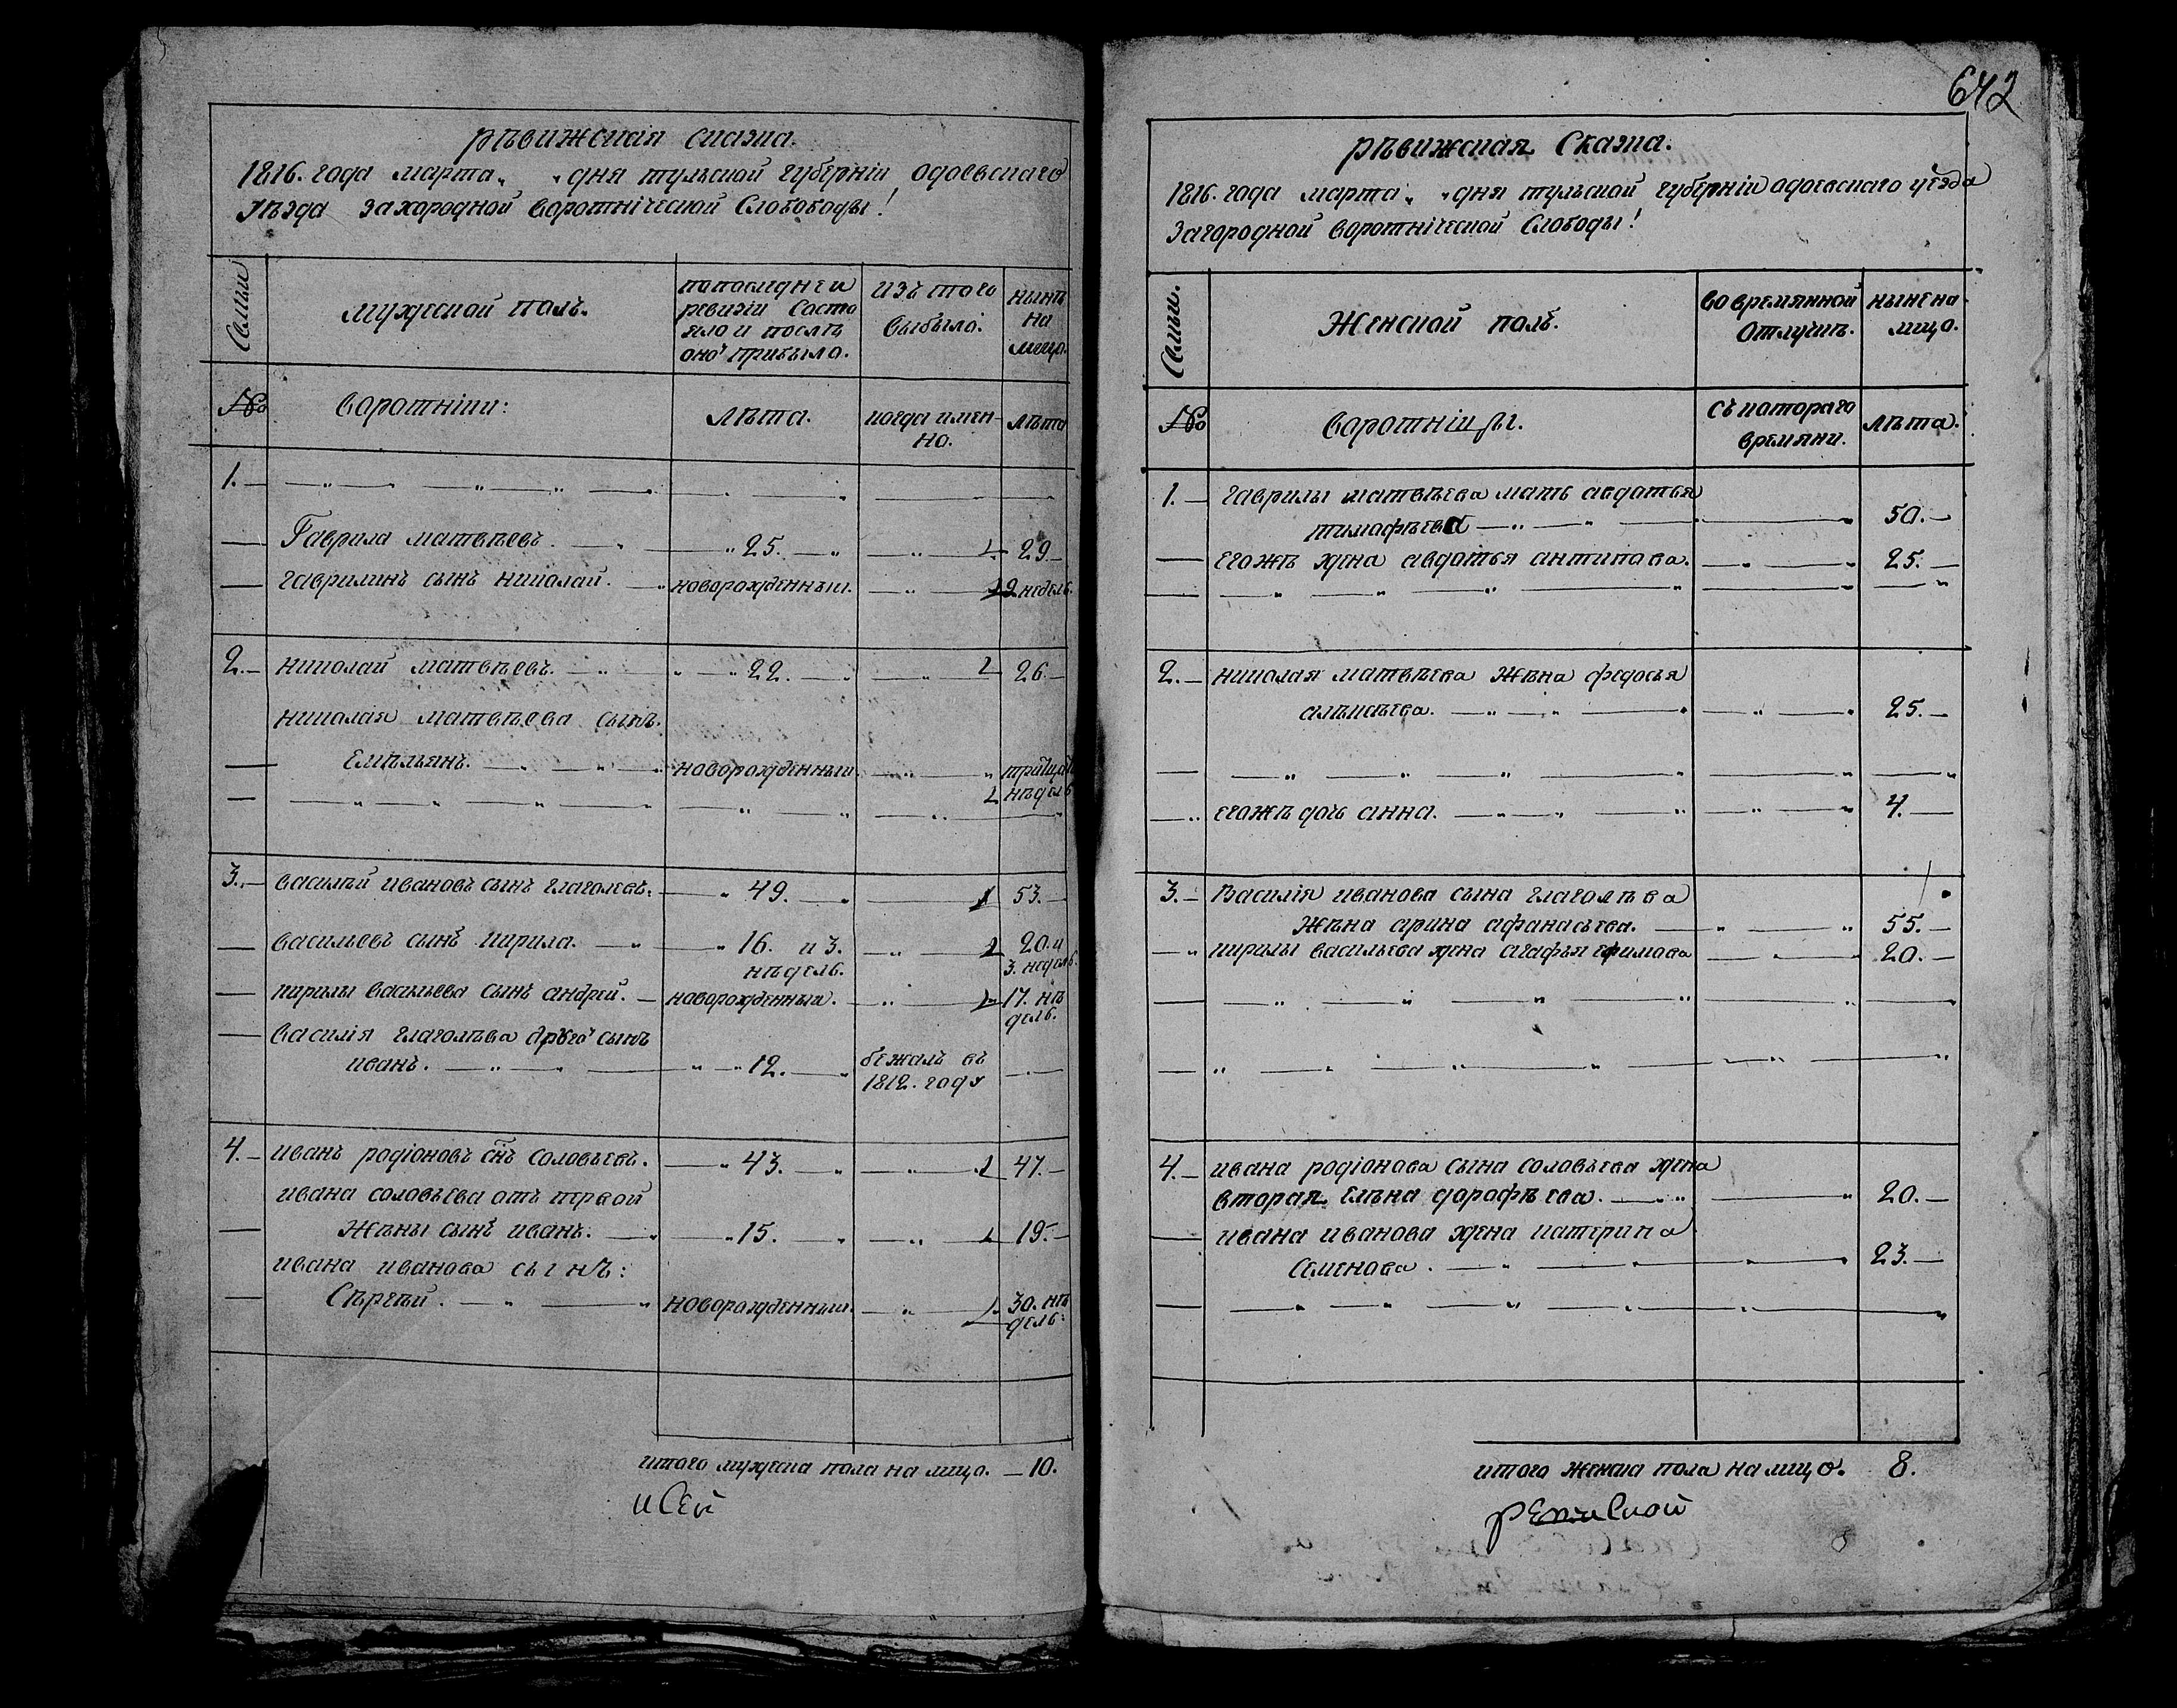 рѣвижская сказка.
1816. года марта „ „ дня тульской губерніи одоевскаго
уѣзда захородной воротнической Слобободы!
Семьи
мужеской полъ.
попоследней
ревизіи Состо
яло и послѣ
оной прибыло.
изъ того
выбыло.
нынѣ
на
лицо.
№
воротники:
лѣта.
когда имен-
но.
лѣта
1.
Гаврила матвѣевъ. 25. 1 29
гаврилинъ сынъ николай. новорожденный. недель.
2. николай матвѣевъ. 22. 1 26
николая матвѣева сынъ
Емѣльянъ. новорожденный
1 нѣдель
3. василѣй ивановъ сынъ глаголевъ. 49. 1 53.
васильевъ сынъ кирила. 16. и 3. 1 20. и
нѣдель. 3. недель.
кирилы васильева сынъ андрей. новорожденный. 1 17. нѣ
дель.
василія глаголѣва другой сынъ
иванъ. 12. бежалъ въ
1812. году
4. иванъ родіоновъ снъ соловьевъ. 43. 1 47.
ивана соловьева отъ первой
жѣны сынъ иванъ. 15. 1 19.
ивана иванова сынъ:
Сѣргѣй. новорожденный. 1 30. нѣ
дель:
итого мужеска пола на лицо. 10.
и сей
642
рѣвижская Сказка.
1816. года марта „ „ дня тульской губерніи одоевскаго уѣзда
Загородной воротнической Слободы!
Семьи.
Женской полъ.
во времянной
отлучкѣ.
нынена
лицо.
№
воротницы.
съ котораго
времяни.
лѣта.
1. гаврилы матвѣева мать авдотья
тимофѣева 50.
егожѣ жена авдотья антипова. 25.
2. николая матвѣева жѣна федосья
алѣксѣева. 25.
егожѣ дочь анна. 4.
3. Василія иванова сына глаголѣва
жѣна арина афанасьева. 55.
кирилы васильева жена агафья ефимова 20.
4. ивана родіонова сына соловьева жена
вторая Елѣна дорофѣева. 20.
ивана иванова жена катерина
Семенова. 23.
итого женска пола на лицо. 8.